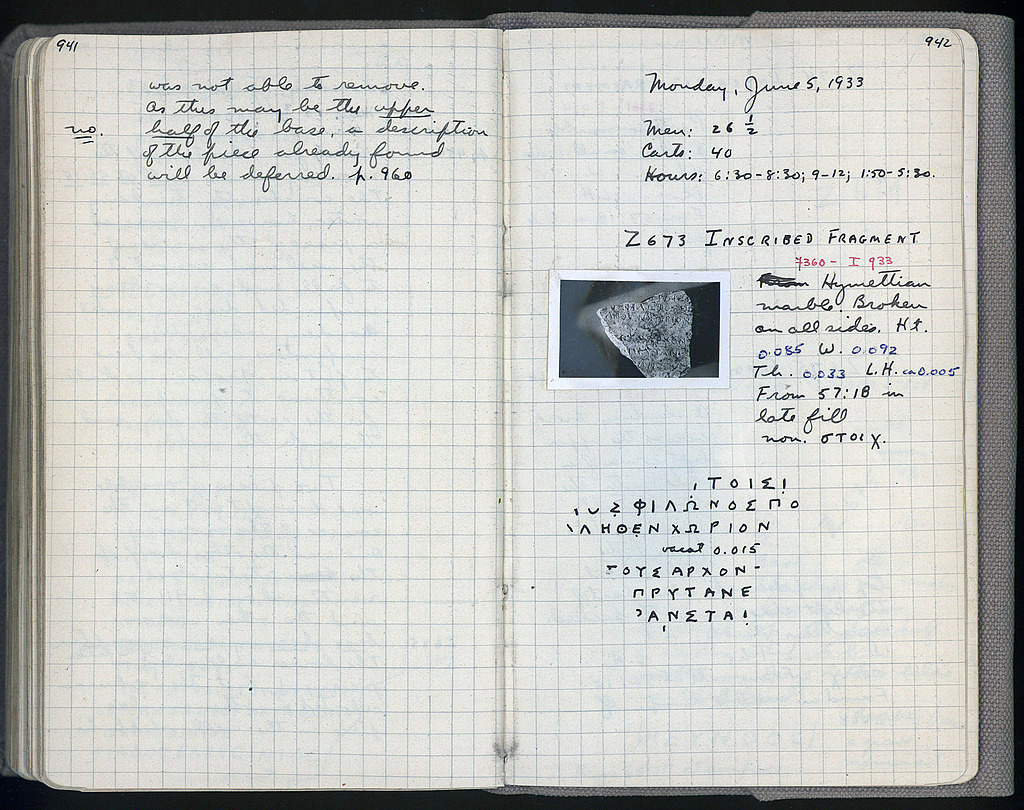 941
was not able to remove.
As this may be the upper
no. half of the base, a description
of the piece already found
will be deferred. p. 960
942
Monday, June 5, 1933
Men: 26 ½
Carts: 40
Hours: 6:30-8:30; 9-12; 1:50-5:30.
Z 673 INSCRIBED FRAGMENT
7360 - I 933
Hymettian
marble. Broken
on all sides. Ht.
0.085 W. 0.092
Th. 0.033 L.H. ca 0.005
From 57:ΙΒ in
late fill
non. στοιχ.
ΤΟΙΣ
Σ ΦΙΛΩΝΟΣ ΠΟ
ΛΗΘΕΝ ΧΩΡΙΟΝ
vacat 0.015
ΟΥΣ ΑΡΧΟΝ
ΠΡΥΤΑΝΕ
ΑΝΣΤΑ